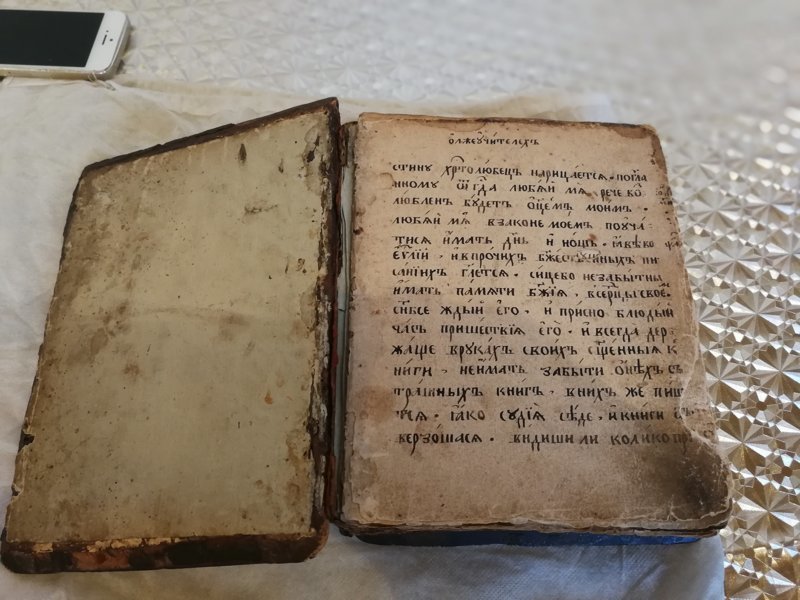 ѽлжеꙋчи́телехъ
стинꙋ хр҃толюбецъ нарицáется · поглa
нному ѿ гд҃а любѧ́й мѧ̀ рече
люблепъ бꙋдетъ ѻ҆ц҃емъ моимъ ·
любѧ́й мѧ̀ взаконе мое́мъ поꙋча́
тисѧ и҆́мать дн҃ь и҆ нощь ·
еѵ҃лїи · и҆впро́чихъ бж҃ественныхъ пи
са́нїихъ гл҃етсѧ · сицебо незабытны
и҆́мать па́мѧти бж҃їѧ · всерⷣцы свое́
и҆ присно блюды́й
часъ пришествїѧ е҆гѡ̀ · и҆ всегда дер
жаще врꙋка́хъ свои́хъ сщ҃е́нныѧ к
ниги · неи҆́мать забыти ѻ҆нѣхъ с
тра́шныхъ книгъ · вни́хъ же пи́ш
тсѧ · ꙗ҆́ко сꙋдїѧ̀ сѣде · и҆ кни́ги
верзо́шасѧ · видиши ли коли́ко